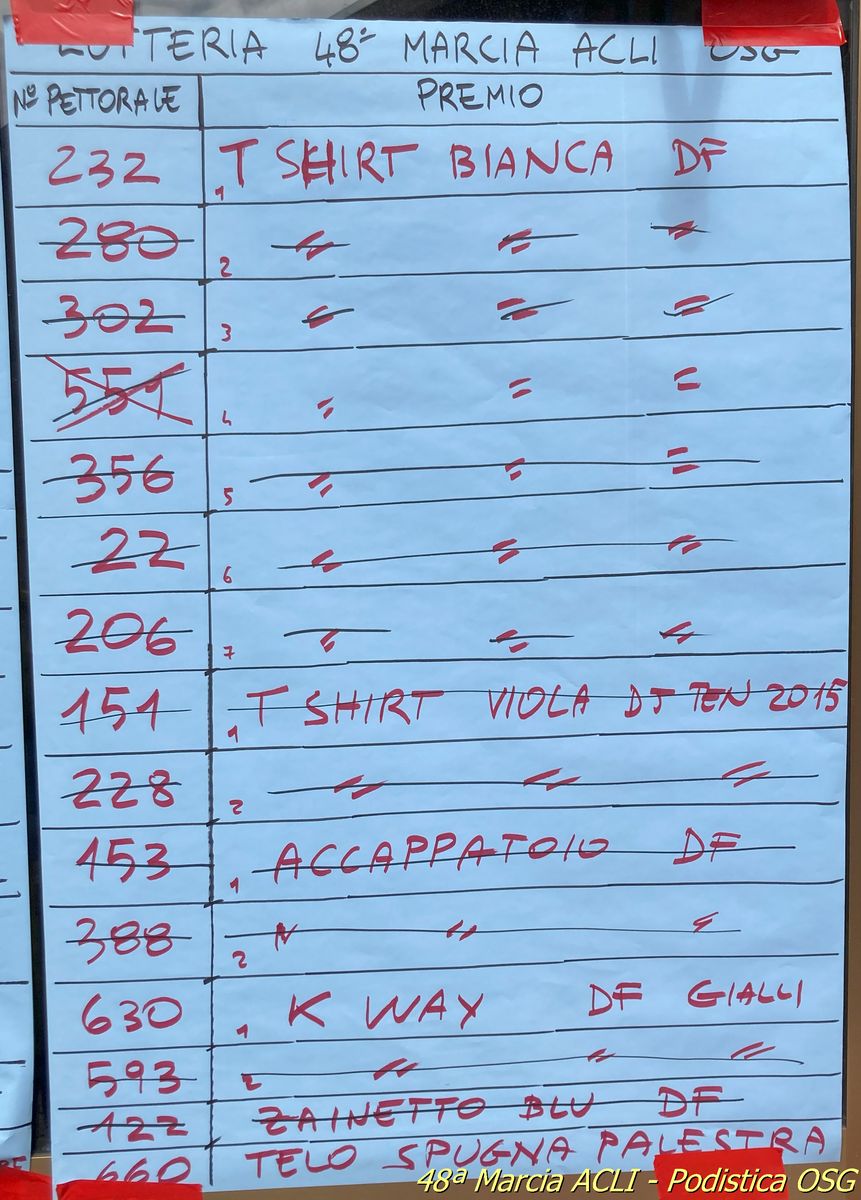 LOTTERIA 48ª MARCIA ACLI OSG
Nº PETTORALE PREMIO
232 1 T SHIRT BIANCA DF
280 2 " " "
302 3 " " "
551 4 " " "
356 5 " " "
22 6 " " "
206 7 " " "
151 1 T SHIRT VIOLA DJ TEN 2015
228 2 " " "
153 1 ACCAPPATOIO DF
388 2 " " "
630 1 K WAY DF GIALLI
593 2 " " "
122 ZAINETTO BLU DF
660 TELO SPUGNA PALESTRA
48ª Marcia ACLI - Podistica OSG